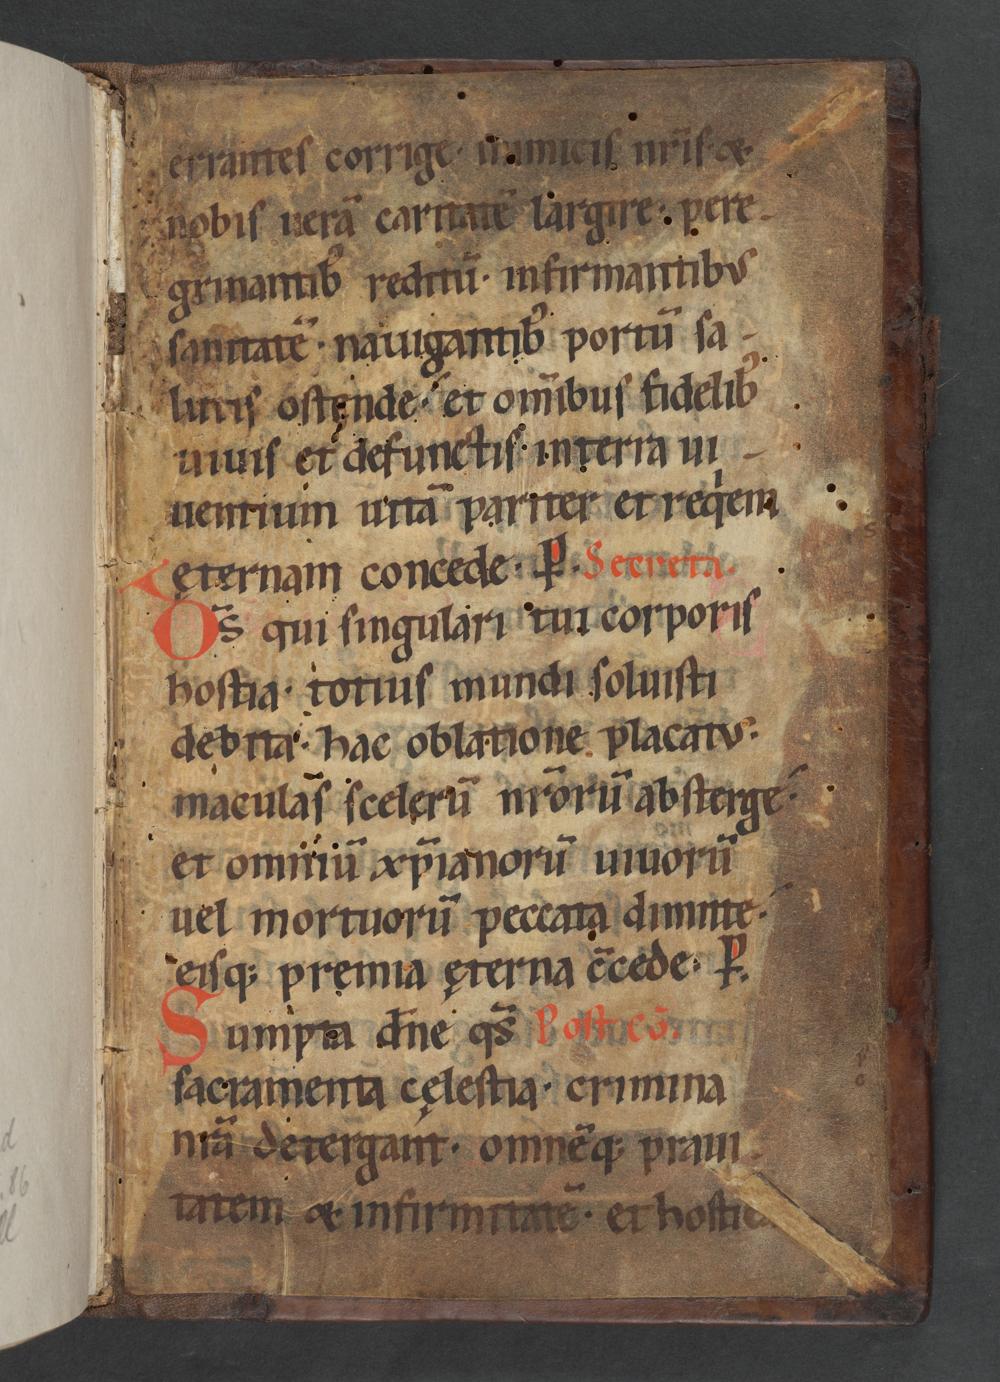 errantes corrige· inimicis nr̄is &
nobis uerā caritatē largire· pere-
grinantib' reditū· infirmantibus
sanitatē· nauigantib' portū sa-
lutis ostende· et om̄ibus fidelib'
uiuis et defunctis· in terra ui-
uentium uitā pariter et reqͥem
ęternam concede· P. Secreta.
D̄s qui singulari tui corporis
hostia· totius mundi soluisti
debita· hac oblatione placatus·
maculas scelerū nr̄orū absterge·
et omniū xp̄ianorū uiuorū
uel mortuorū peccata dimitte·
eisq; premia ęterna c̄cede· P.
Sumpta dn̄e qs̄ Postcō.
sacramenta cęlestia· crimina
nr̄a detergant· omnēq; praui-
tatem & infirmitatē· et hostica